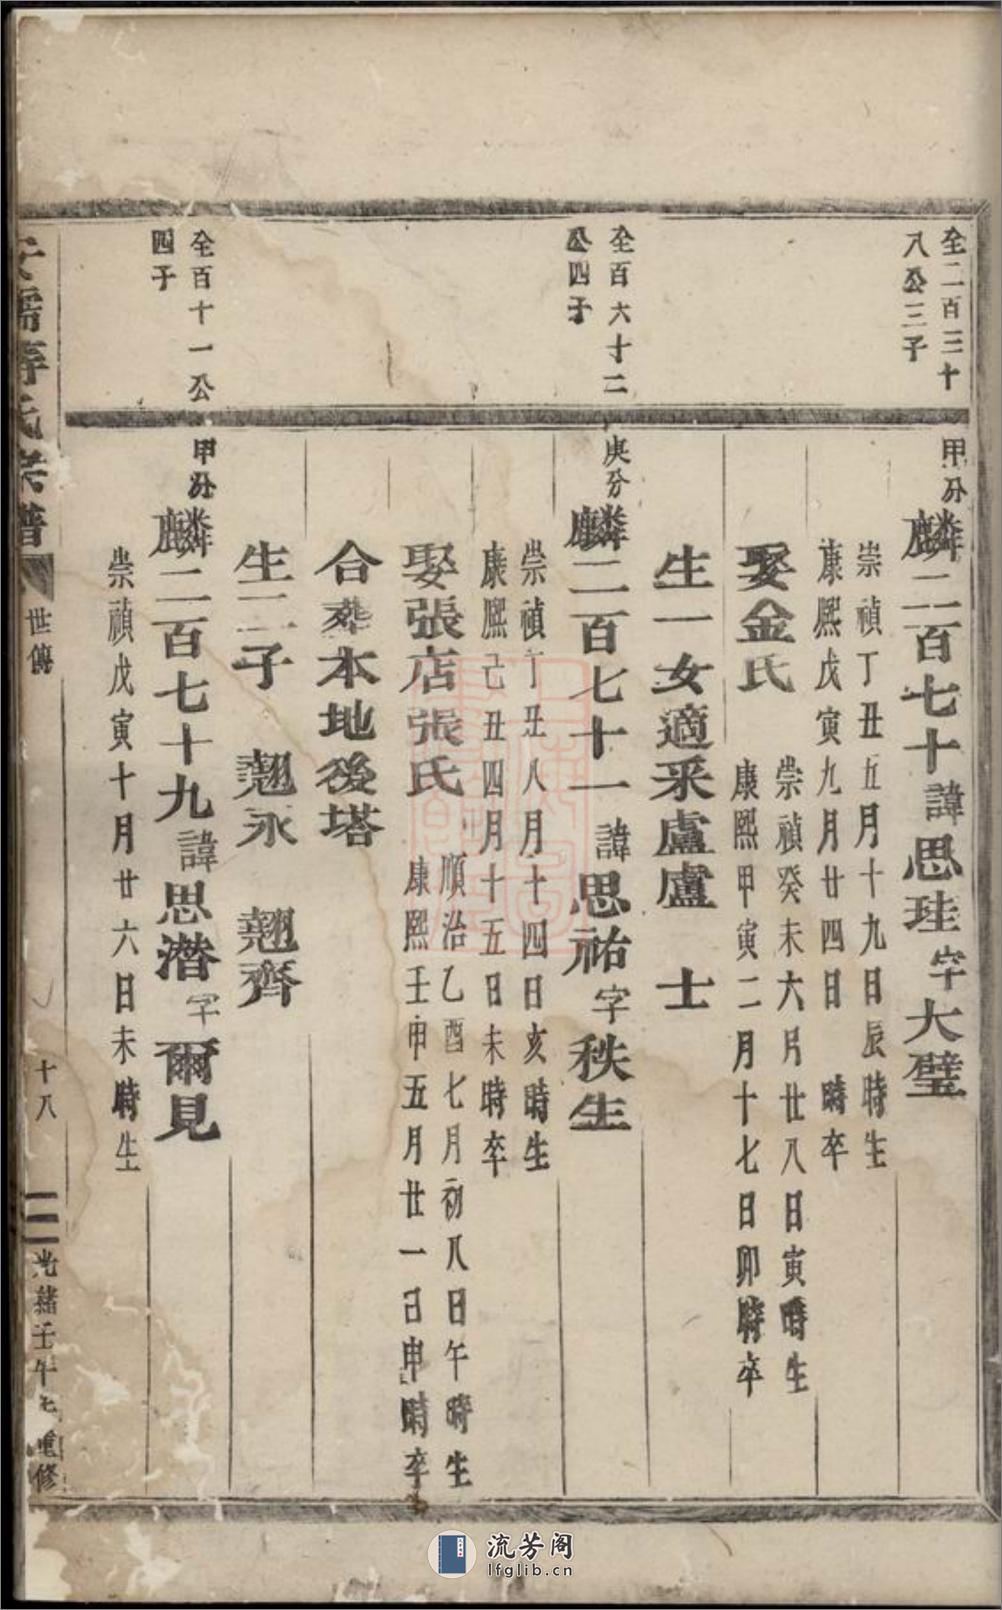 仝二百三十
八公三子
甲分
麟二百七十諱思珪字大璧
崇禎丁丑五月十九日辰時生
康熙戊寅九月廿四日 時卒
娶金氏
崇禎癸未六月廿八日寅時生
康熙甲寅二月十七日卯時卒
生一女適釆盧盧 士
仝百六十二
公四子
庚分
麟二百七十一諱思祐字秩生
崇禎丁丑八月十四日亥時生
康熙己丑四月十五日未時卒
娶張店張氏
順治乙酉七月初八日午時生
康熙壬申五月廿一己申時卒
合葬本地後塔
生二子 翹永 翹齊
仝百十一公
四子
甲分
麟二百七十九諱思潛字爾見
崇禎戊寅十月廿六日未時生
氏宗譜
世傳
十八
光緒壬午七重修
流芳阁
lfglib.cn